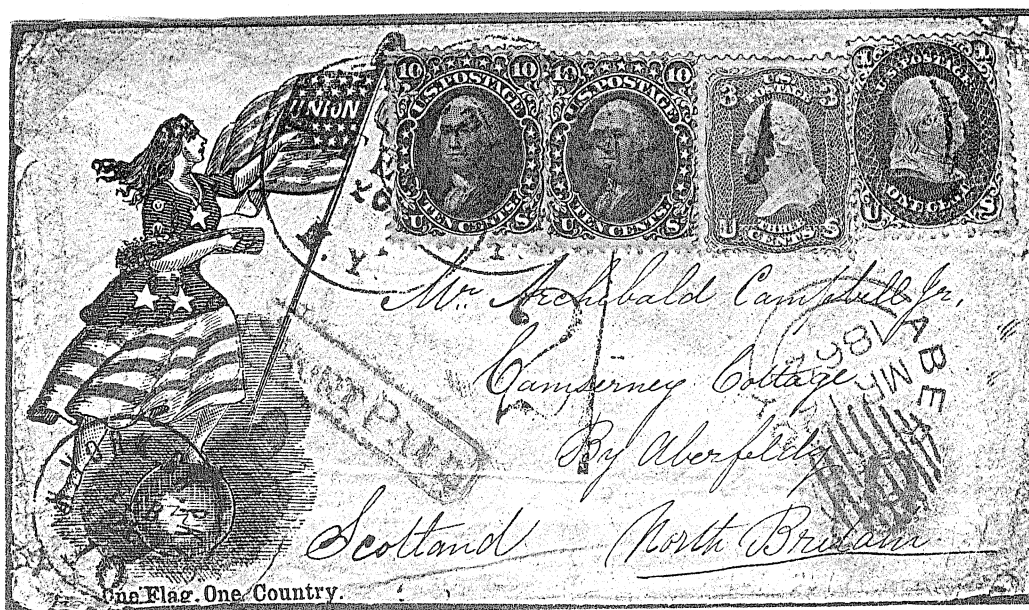 UNION
10 10
U.S. POSTAGE
TEN CENTS
U S
10 10
U.S. POSTAGE
TEN CENTS.
U S
U.S.
POSTAGE
3 3
THREE
U CENTS S
1 1
U.S. POSTAGE
ONE CENT.
U S
N.Y.
Mr. Archibald Campbell Jr.
Camserney Cottage
By Aberfeldy
Scotland North Britain
PAID
ABE
One Flag. One Country.